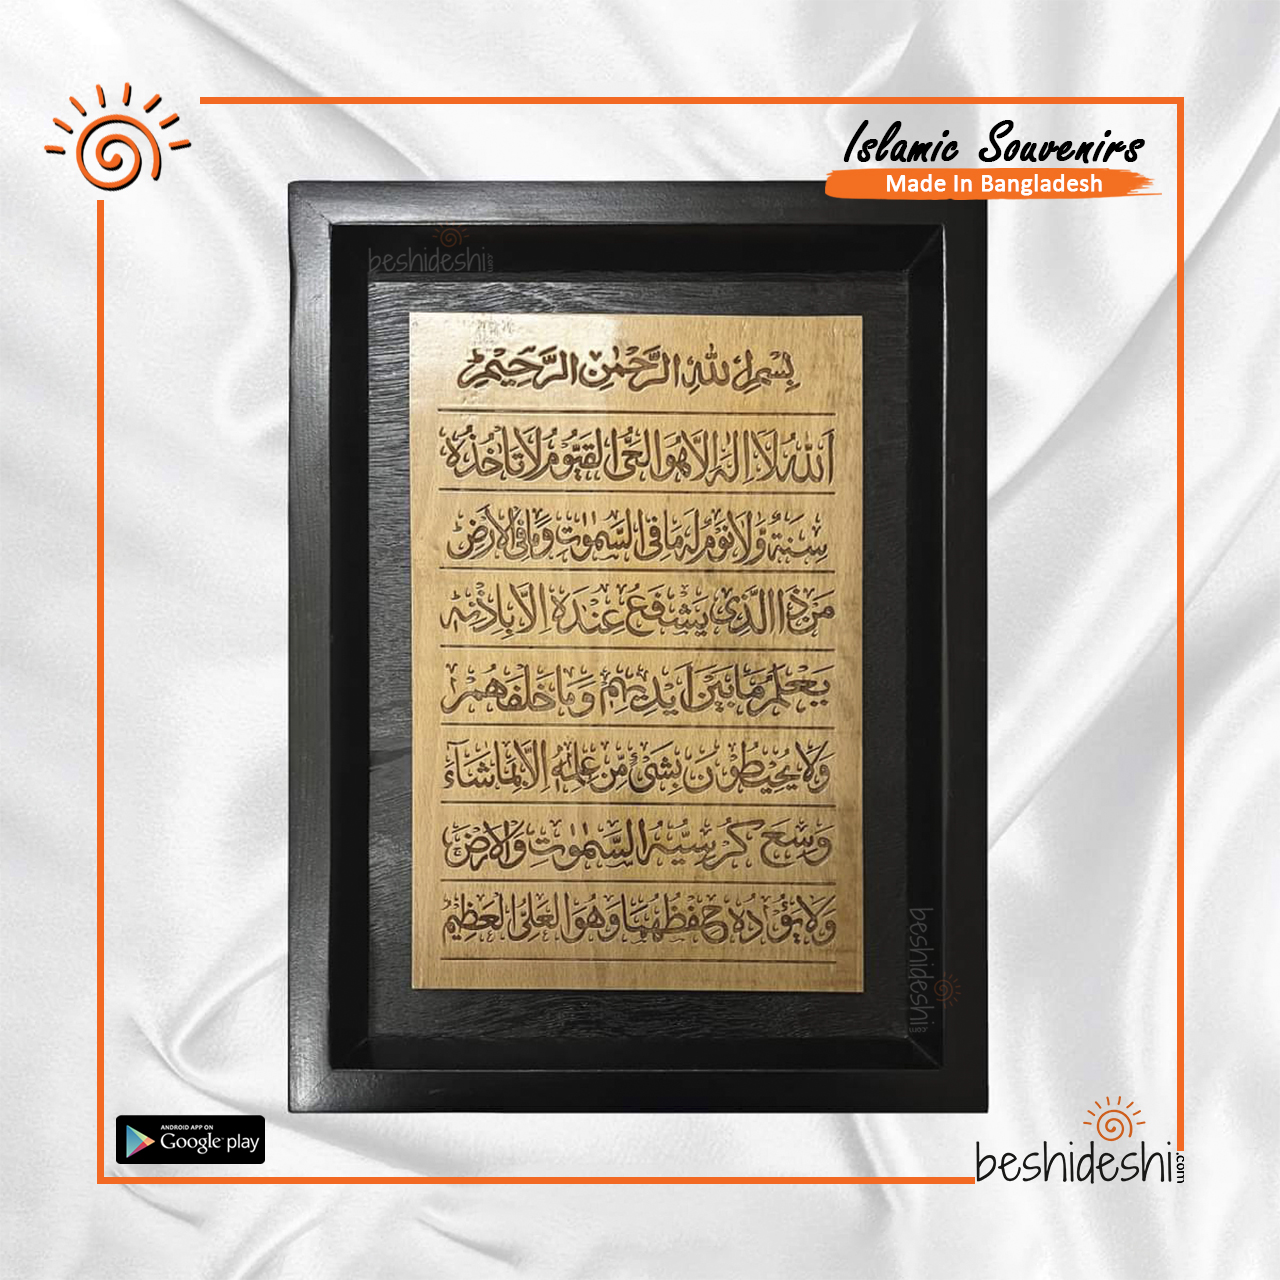 Islamic Souvenirs
Made In Bangladesh
beshideshi.com
بِسْمِ اللهِ الرَّحْمٰنِ الرَّحِيْمِ
اَللهُ لَا اِلٰهَ اِلَّا هُوَ الْحَيُّ الْقَيُّوْمُ لَا تَاْخُذُهٗ
سِنَةٌ وَّلَا نَوْمٌ لَهٗ مَا فِى السَّمٰوٰتِ وَمَا فِى الْاَرْضِ
مَنْ ذَا الَّذِىْ يَشْفَعُ عِنْدَهٗ اِلَّا بِاِذْنِهٖ
يَعْلَمُ مَا بَيْنَ اَيْدِيْهِمْ وَمَا خَلْفَهُمْ
وَلَا يُحِيْطُوْنَ بِشَىْءٍ مِّنْ عِلْمِهٖ اِلَّا بِمَا شَآءَ
وَسِعَ كُرْسِيُّهُ السَّمٰوٰتِ وَالْاَرْضَ
وَلَا يَئُوْدُهٗ حِفْظُهُمَا وَهُوَ الْعَلِىُّ الْعَظِيْمُ
beshideshi.com
ANDROID APP ON
Google play
beshideshi.com